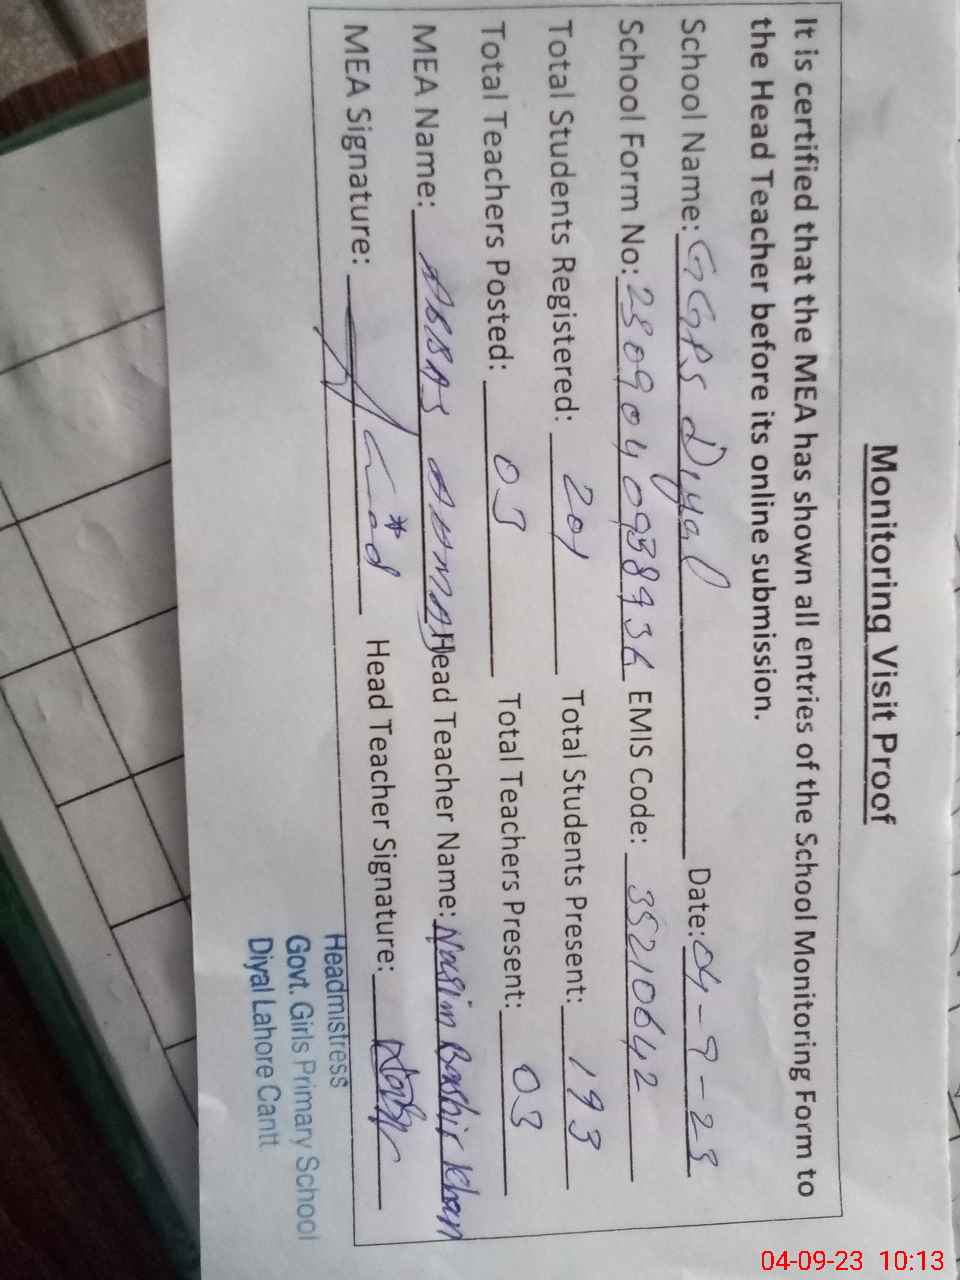 Monitoring Visit Proof
It is certified that the MEA has shown all entries of the School Monitoring Form to
the Head Teacher before its online submission.
School Name: GGPS Diyal Date: 04-9-23
School Form No: EMIS Code: 35210642
Total Students Registered: 201 Total Students Present: 193
Total Teachers Posted: 03 Total Teachers Present: 03
MEA Name: ABBAS Head Teacher Name: Nasim Bashir Khan
MEA Signature: Head Teacher Signature:
Headmistress
Govt. Girls Primary School
Diyal Lahore Cantt
04-09-23 10:13